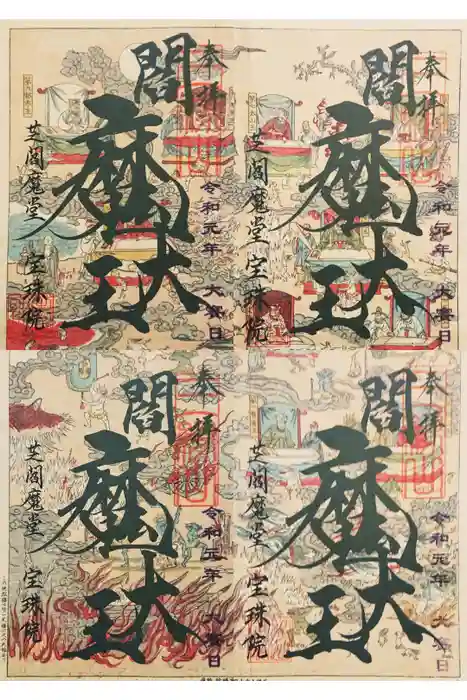 奉拝
令和元年 大斎日
閻魔大王
芝閻魔堂 宝珠院
奉拝
令和元年 大斎日
閻魔大王
芝閻魔堂 宝珠院
奉拝
令和元年 大斎日
閻魔大王
芝閻魔堂 宝珠院
奉拝
令和元年 大斎日
閻魔大王
芝閻魔堂 宝珠院